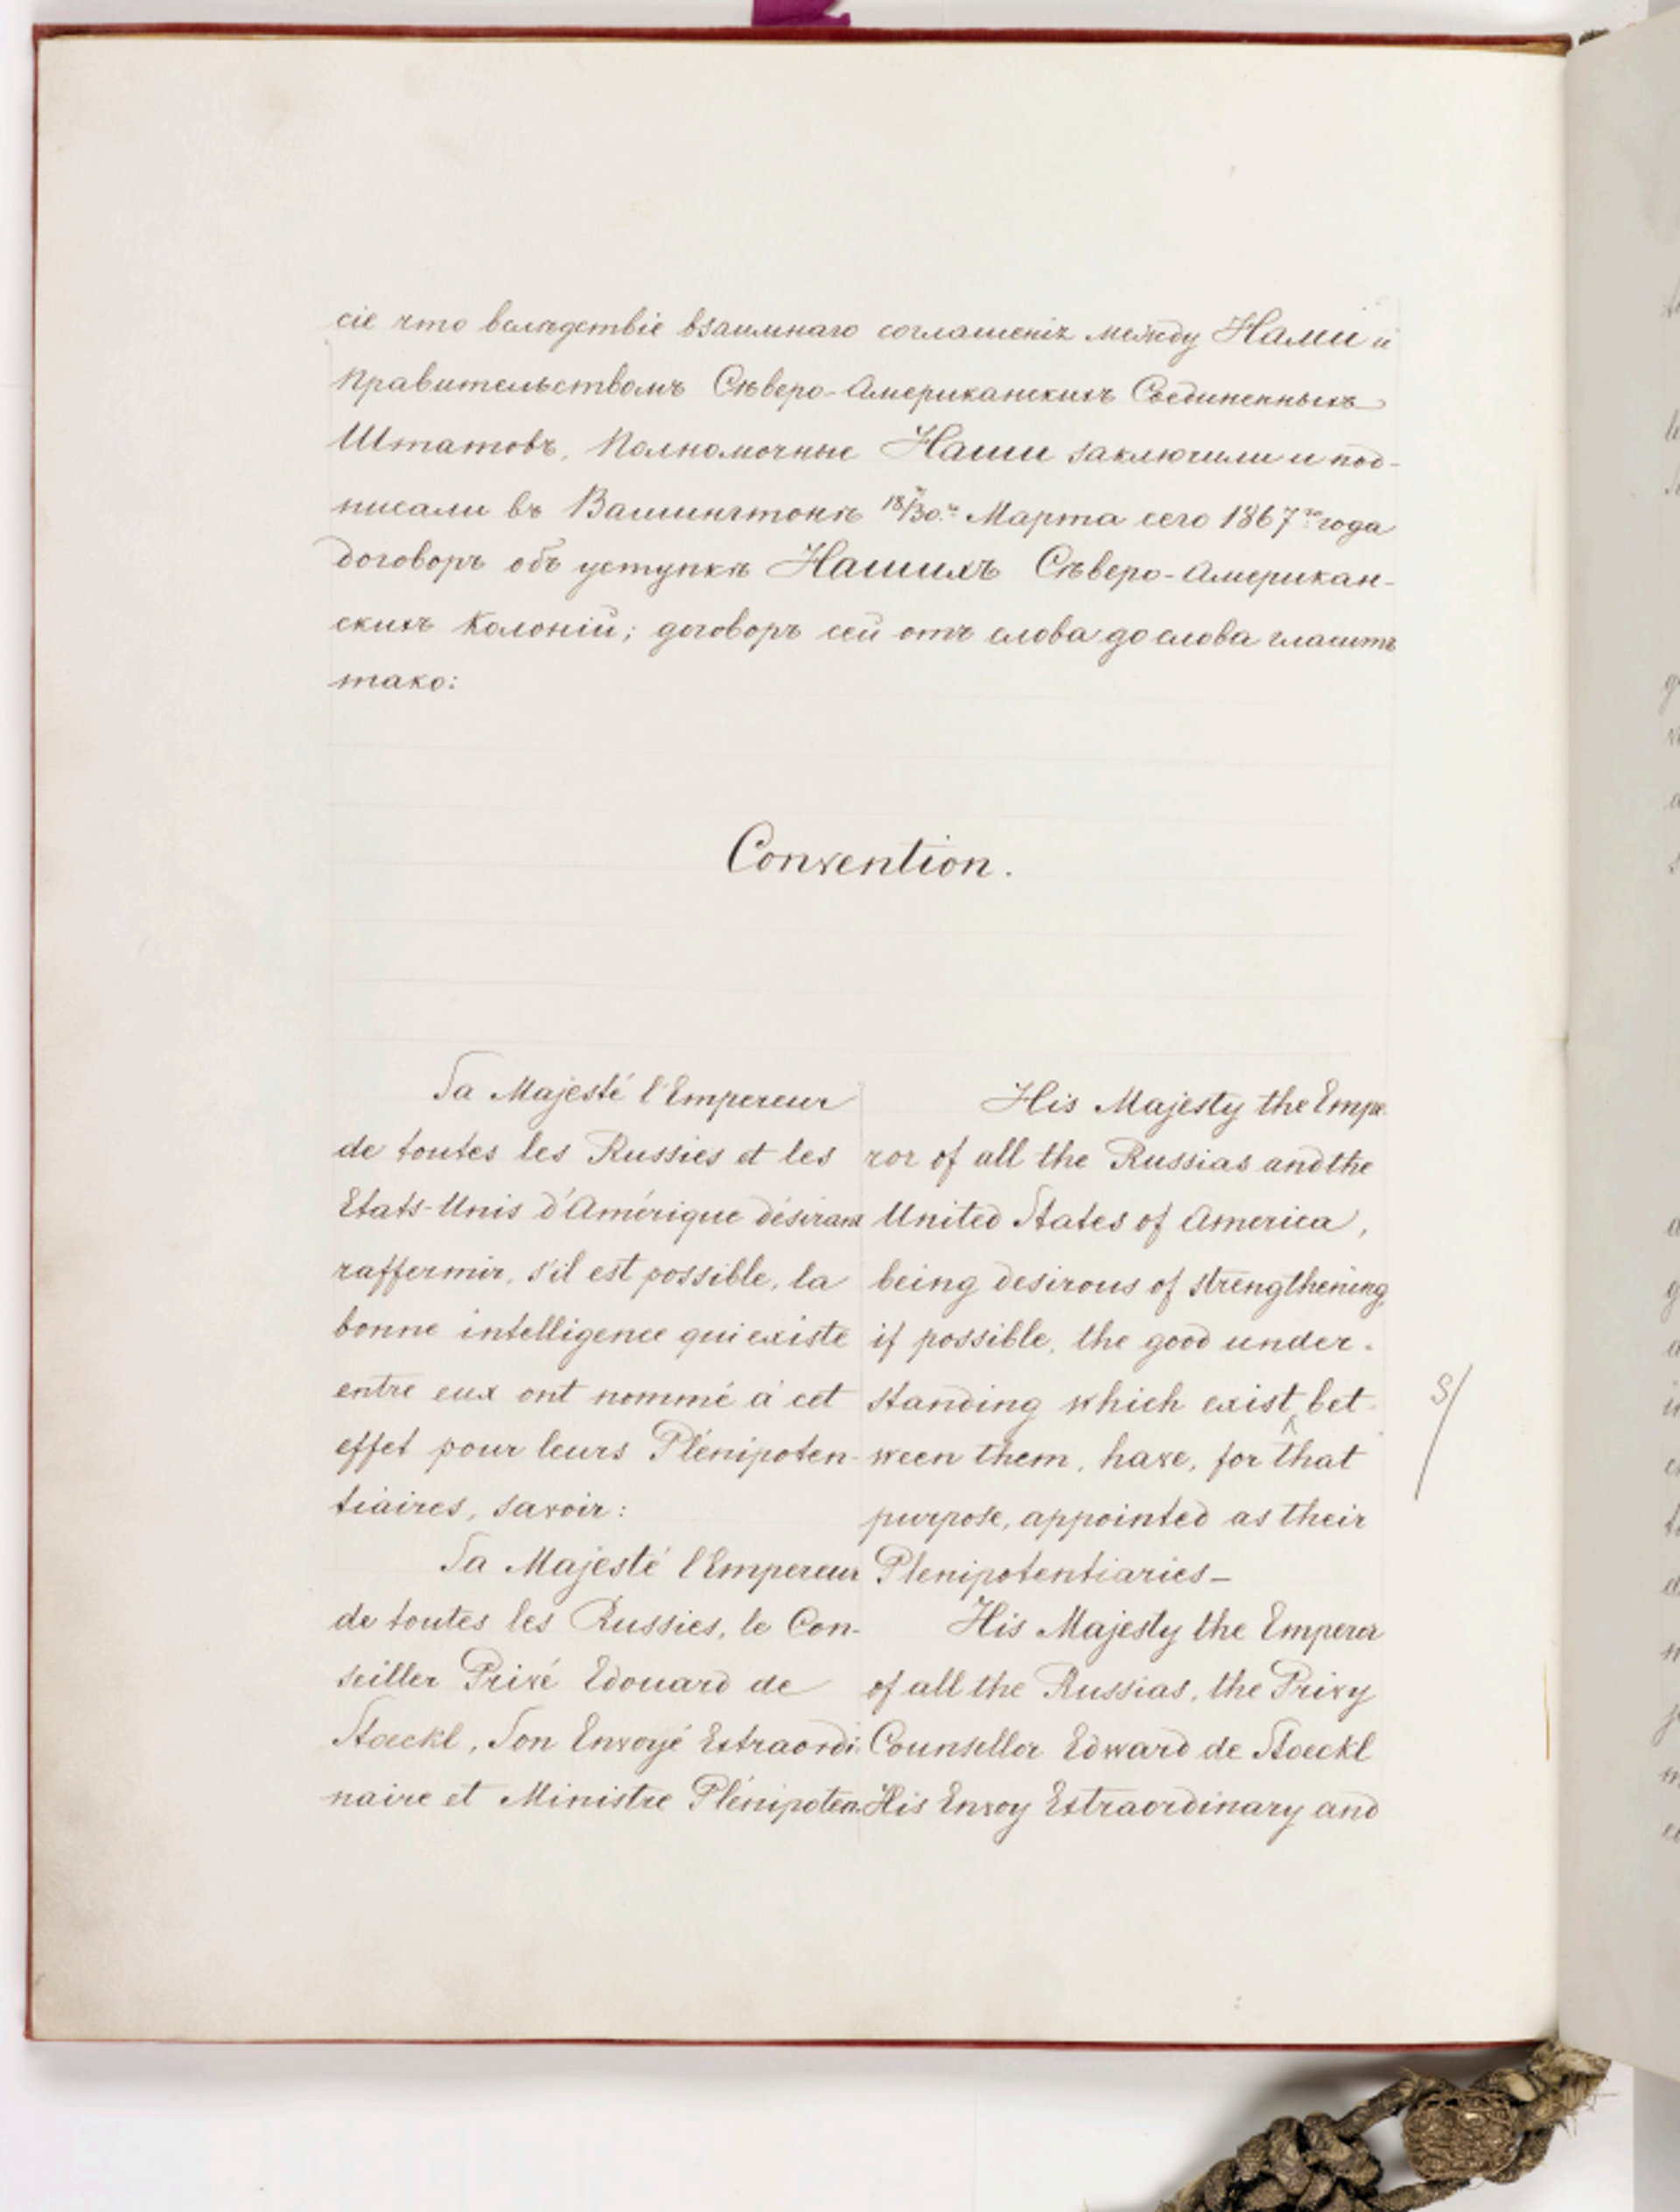 сіе что вслѣдствіе взаимнаго соглашенія между Нами и
Правительствомъ Сѣверо-Американскихъ Соединенныхъ
Штатовъ, Полномочные Наши заключили и под-
писали въ Вашингтонѣ 18/30 Марта сего 1867го года
договоръ объ уступкѣ Нашихъ Сѣверо-Американ-
скихъ Колоній; договоръ сей отъ слова до слова гласитъ
тако:
Convention.
Sa Majesté l'Empereur
de toutes les Russies et les
Etats-Unis d'Amérique désirant
raffermir, s'il est possible, la
bonne intelligence qui existe
entre eux ont nommé à cet
effet pour leurs Plénipoten-
tiaires, savoir:
Sa Majesté l'Empereur
de toutes les Russies, le Con-
seiller Privé Edouard de
Stoeckl, Son Envoyé Extraordi-
naire et Ministre Plénipoten-
His Majesty the Empe-
ror of all the Russias and the
United States of America,
being desirous of strengthening,
if possible, the good under-
standing which exist bet-
s/
ween them, have, for that
purpose, appointed as their
Plenipotentiaries—
His Majesty the Emperor
of all the Russias, the Privy
Counsellor Edward de Stoeckl
His Envoy Extraordinary and